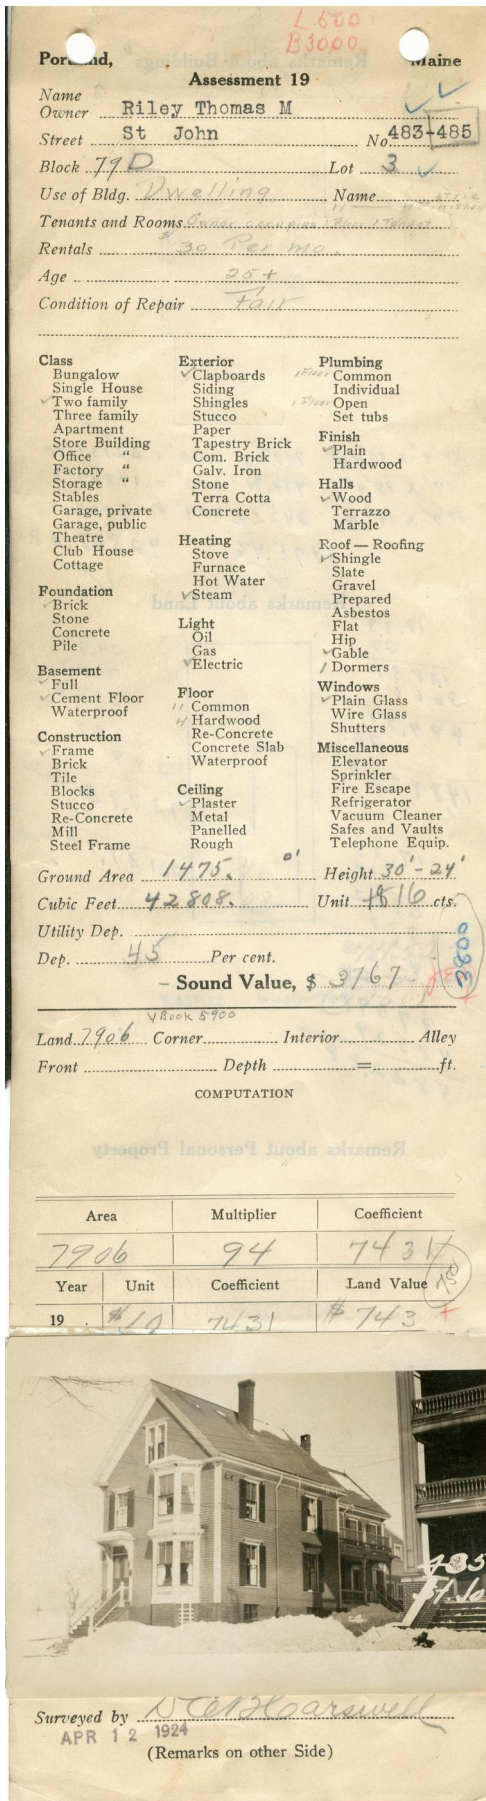 L.600
B3000
Portland, Maine
Assessment 19
Name
Owner Riley Thomas M
Street St John No. 483-485
Block 79D Lot 3
Use of Bldg. Dwelling Name
Tenants and Rooms Owner occupies 1 Floor 1 Tenant
Rentals $30 Per mo.
Age 25+
Condition of Repair Fair
Class
Bungalow
Single House
✓Two family
Three family
Apartment
Store Building
Office "
Factory "
Storage "
Stables
Garage, private
Garage, public
Theatre
Club House
Cottage
Foundation
✓Brick
Stone
Concrete
Pile
Basement
✓Full
✓Cement Floor
Waterproof
Construction
✓Frame
Brick
Tile
Blocks
Stucco
Re-Concrete
Mill
Steel Frame
Exterior
✓Clapboards
Siding
Shingles
Stucco
Paper
Tapestry Brick
Com. Brick
Galv. Iron
Stone
Terra Cotta
Concrete
Heating
Stove
Furnace
Hot Water
✓Steam
Light
Oil
Gas
✓Electric
Floor
11 Common
4 Hardwood
Re-Concrete
Concrete Slab
Waterproof
Ceiling
✓Plaster
Metal
Panelled
Rough
Plumbing
1 Floor Common
Individual
1 Floor Open
Set tubs
Finish
✓Plain
Hardwood
Halls
✓Wood
Terrazzo
Marble
Roof — Roofing
✓Shingle
Slate
Gravel
Prepared
Asbestos
Flat
Hip
✓Gable
1 Dormers
Windows
✓Plain Glass
Wire Glass
Shutters
Miscellaneous
Elevator
Sprinkler
Fire Escape
Refrigerator
Vacuum Cleaner
Safes and Vaults
Telephone Equip.
Ground Area 1475. □' Height 30'-24'
Cubic Feet 42808. Unit 16 cts.
Utility Dep.
Dep. 45 Per cent.
3800
Sound Value, $ 3767
V Book 5900
Land 7906 Corner Interior Alley
Front Depth = ft.
COMPUTATION
Area Multiplier Coefficient
7906 94 7431
Year Unit Coefficient Land Value 750
19 . $ 10 7431 $ 743 +
485
Surveyed by
APR 12 1924
(Remarks on other Side)